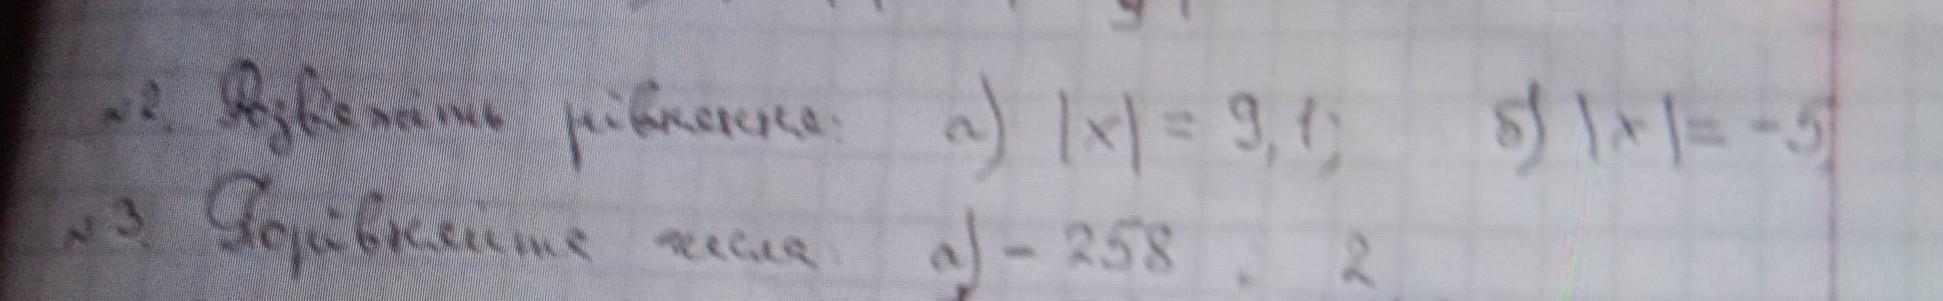 №2. Розв'яжіть рівняння: а) |x| = 9,1; б) |x| = -5
№3. Порівняйте числа: а) - 258 . 2